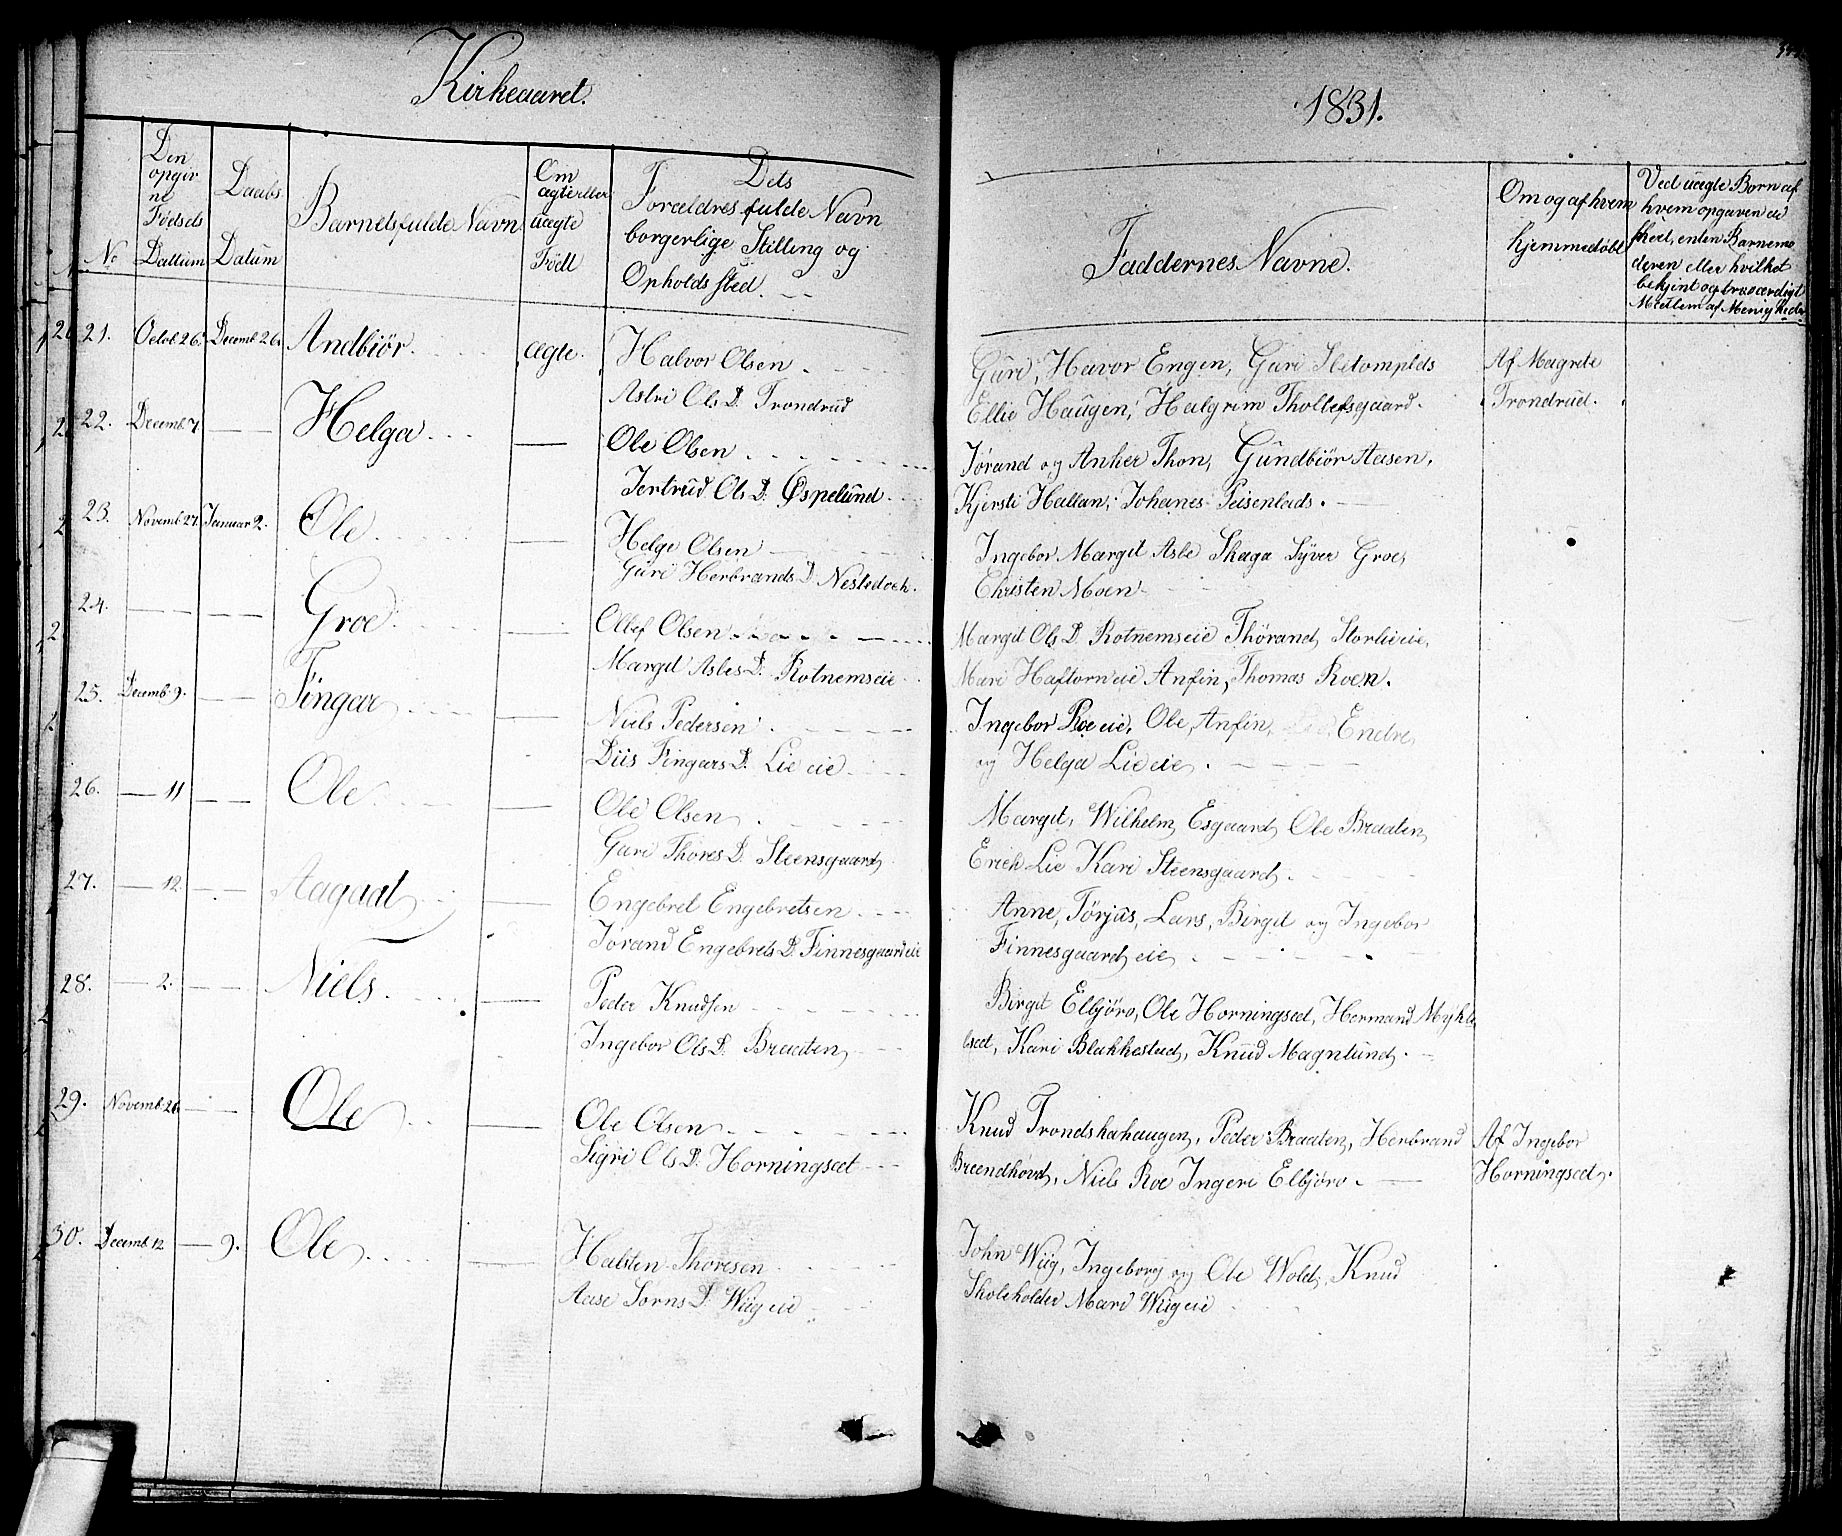 Kirkeaaret.
1831.
No
Den opgivne Födsels Dattum
Daabs Datum
Barnets fulde Navn
Om ægte eller uægte Född
Dets Forældres fulde Navn borgerlige Stilling og Opholds sted.
Faddernes Navne.
Om og af hvem hjemmedöbt
Ved uægte Börn af hvem opgaven er skeet, enten Barnemoderen eller hvilket bekjent og troværdigt Medlem af Menigheden
21. Octob. 26. Decemb. 26. Andbiör. ægte. Halvor Olsen
Astri Ols D. Trondrud
Guri, Havor Engen, Guri
Ellie Haugen, Halgrim Thollefsgaard.
Af Magrete
Trondrud.
22. Decemb. 7 — Helga. — Ole Olsen
Jertrud Ols D. Öspelund
Jörand og Anker Thon, Gundbiör Aasen,
Kjersti Hallan, Johanes Peisenlads.
23. Novemb. 27. Januar 2. Ole. — Helge Olsen
Guri Herbrands D. Nestedoek.
Ingebor Margit Asle Skaga Syver Groe,
Christen Moen
24. — — Groe — Ollef Olsen
Margit Asles D. Rotnemseie
Margit Ols D. Rotnemseie Thörand, Storlieeie,
Mari Haftorneie Anfin, Thomas Roen.
25. Decemb. 9. — Fingar — Niels Pedersen
Diis Fingars D. Lie eie
Ingebor Roe eie, Ole, Anfin, Endre,
og Helga Lie eie.
26. — 11 — Ole. — Ole Olsen
Guri Thores D. Steensgaard
Margit, Wilhelm, Esgaard, Ole Braaten,
Erich Lie Kari Steensgaard.
27. — 12. — Aagaat — Engebret Engebretsen
Jorand Engebrets D. Finnesgaard eie
Anne, Törjus, Lars, Birgit og Ingebor
Finnesgaard eie
28. — 2. — Niels. — Peder Knudsen
Ingebor Ols D. Braaten
Birgit Elbjöro, Ole Horningset, Hermand Mykle
bset, Kari Blakkestad, Knud Magnlund.
29. Novemb. 26 — Ole — Ole Olsen
Sigri Ols D. Horningset
Knud Trondshahaugen, Peder Braaten, Herbrand
Brendhovd, Niels Roe Ingeri Elbjöro.
Af Ingebor
Horningset.
30. Decemb. 12 — 9. Ole. — Halsten Thoresen
Aase Jorns D. Wiig eie
John Wiig, Ingeborg og Ole Wold, Knud
Skoleholder Mari Wiig eie